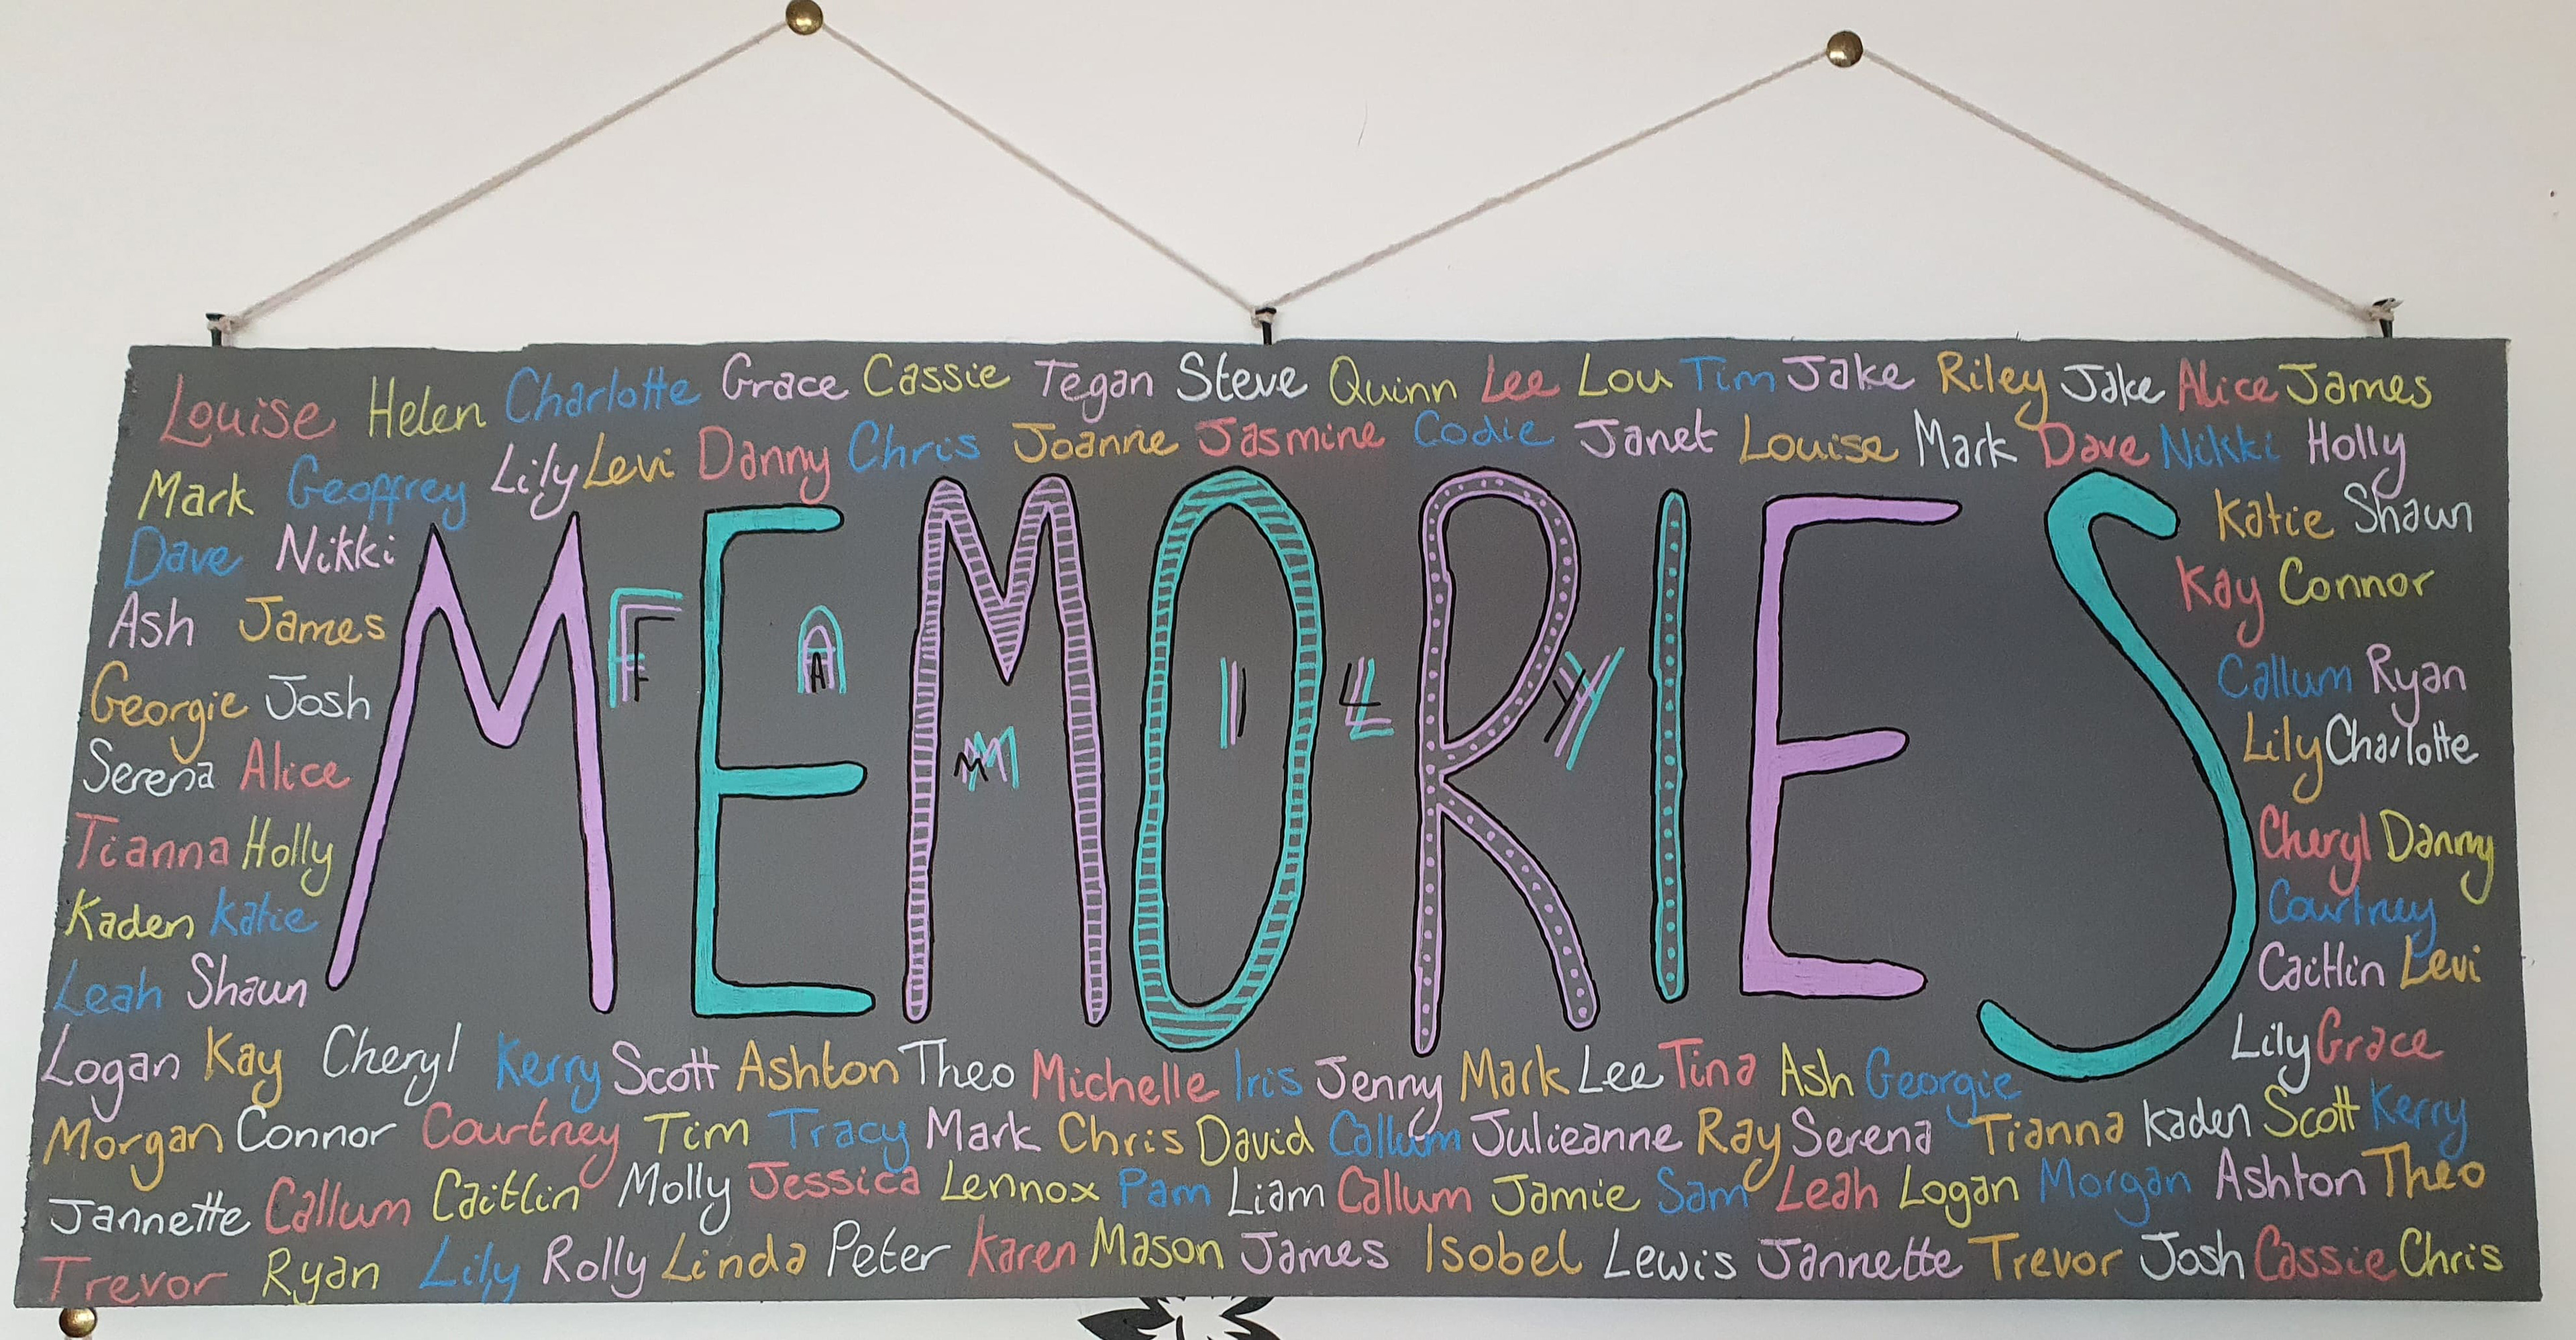 Louise Helen Charlotte Grace Cassie Tegan Steve Quinn Lee Lou Tim Jake Riley Jake Alice James
Mark Geoffrey Lily Levi Danny Chris Joanne Jasmine Codie Janet Louise Mark Dave Nikki Holly
Dave Nikki
Katie Shawn
Ash James
Kay Connor
Georgie Josh
Callum Ryan
Serena Alice
Lily Charlotte
MEMORIES
FAMILY
Tianna Holly
Cheryl Danny
Kaden Katie
Courtney
Leah Shawn
Caitlin Levi
Lily Grace
Logan Kay Cheryl Kerry Scott Ashton Theo Michelle Iris Jenny Mark Lee Tina Ash Georgie
Morgan Connor Courtney Tim Tracy Mark Chris David Callum Julieanne Ray Serena Tianna Kaden Scott Kerry
Jannette Callum Caitlin Molly Jessica Lennox Pam Liam Callum Jamie Sam Leah Logan Morgan Ashton Theo
Trevor Ryan Lily Rolly Linda Peter Karen Mason James Isobel Lewis Jannette Trevor Josh Cassie Chris